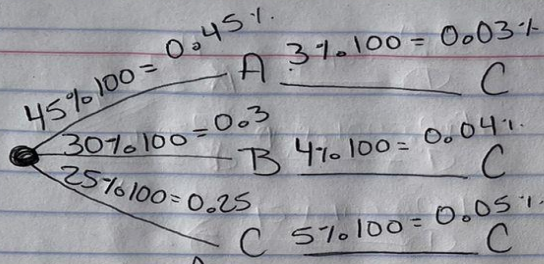 45%100 = 0.45% A 3%.100 = 0.03% C
30%100 = 0.3 B 4%100 = 0.04% C
25%100 = 0.25 C 5%100 = 0.05% C